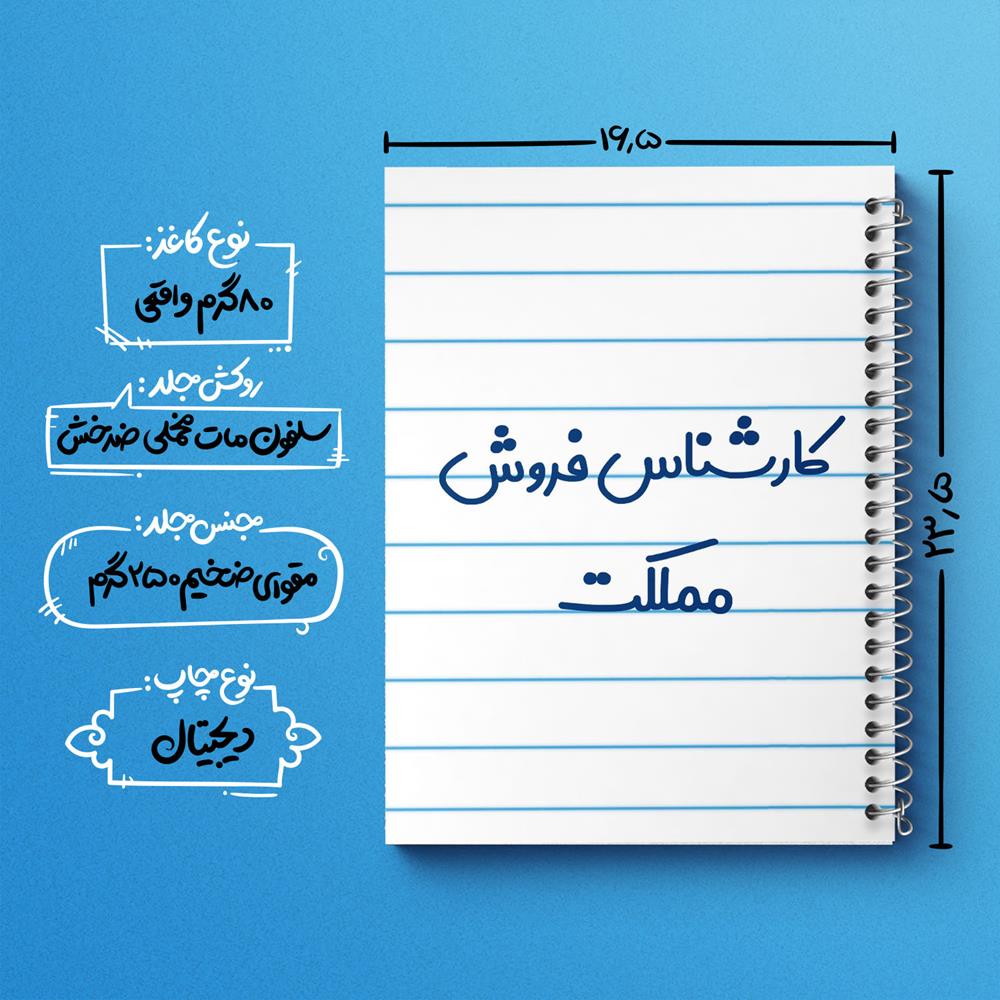 ۱۶٫۵
۲۳٫۵
کارشناس فروش
مملکت
نوع کاغذ:
۸۰گرم واقعی
روکش جلد:
سلفون مات مخملی ضدخش
جنس جلد:
مقوای ضخیم ۲۵۰ گرم
نوع چاپ:
دیجیتال